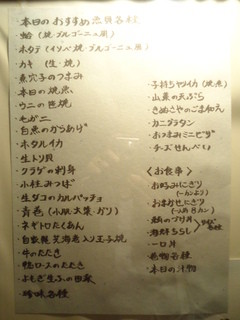 ・本日のおすすめ魚貝各種
・蛤(焼・ブルゴーニュ風)
・ホタテ(イソベ焼・ブルゴーニュ風)
・カキ(生・焼)
・煮穴子のつまみ
・本日の焼魚
・ウニの貝焼
・毛ガニ
・白魚のからあげ
・ホタルイカ
・生トリ貝
・クラゲの刺身
・小柱みつば
・生ダコのカルパッチョ
・青色(小肌・大葉・ガリ)
・ネギトロたくあん
・自家製芝海老入り玉子焼
・牛のたたき
・鴨ロースのたたき
・よもぎ生ふの田楽
・珍味各種
・子持ちヤリイカ(焼・煮)
・山菜の天ぷら
・きぬさやのごま和え
・カニグラタン
・おつまみミニピザ
・チーズせんべい
《お食事》
・お好みにぎり
(一カンより)
・おまかせにぎり
・鮪のづけ丼
・海鮮ちらし
・一口丼
・巻物各種
・本日の汁物